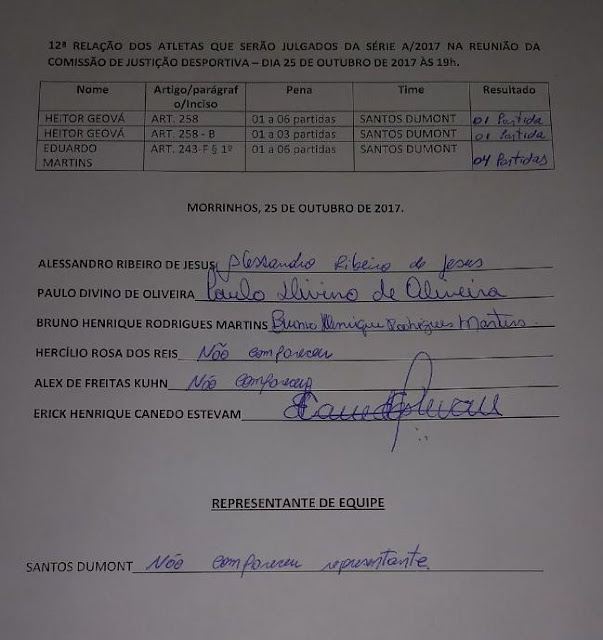 12ª RELAÇÃO DOS ATLETAS QUE SERÃO JULGADOS DA SÉRIE A/2017 NA REUNIÃO DA
COMISSÃO DE JUSTIÇÃO DESPORTIVA – DIA 25 DE OUTUBRO DE 2017 ÀS 19h.
Nome Artigo/parágraf o/Inciso Pena Time Resultado
HEITOR GEOVÁ ART. 258 01 a 06 partidas SANTOS DUMONT 01 Partida
HEITOR GEOVÁ ART. 258 - B 01 a 03 partidas SANTOS DUMONT 01 Partida
EDUARDO MARTINS ART. 243-F § 1º 01 a 06 partidas SANTOS DUMONT 04 Partidas
MORRINHOS, 25 DE OUTUBRO DE 2017.
ALESSANDRO RIBEIRO DE JESUS Alessandro Ribeiro de Jesus
PAULO DIVINO DE OLIVEIRA Paulo Divino de Oliveira
BRUNO HENRIQUE RODRIGUES MARTINS Bruno Henrique Rodrigues Martins
HERCÍLIO ROSA DOS REIS Não compareceu
ALEX DE FREITAS KUHN Não compareceu
ERICK HENRIQUE CANEDO ESTEVAM
REPRESENTANTE DE EQUIPE
SANTOS DUMONT Não compareceu representante.